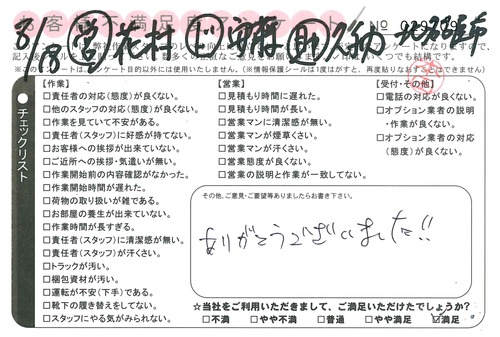 お客様不満足度アンケート No
8/13 ㊂花村
【作業】
□責任者の対応(態度)が良くない。
□他のスタッフの対応(態度)が良くない。
□作業を見ていて不安がある。
□責任者(スタッフ)に好感が持てない。
□お客様への挨拶が出来ていない。
□ご近所への挨拶・気遣いが無い。
□作業開始前の内容確認がなかった。
□作業開始時間が遅れた。
□荷物の取り扱いが雑である。
□お部屋の養生が出来ていない。
□作業時間が長すぎる。
□責任者(スタッフ)に清潔感が無い。
□責任者(スタッフ)が汗くさい。
□トラックが汚い。
□梱包資材が汚い。
□運転が不安(下手)である。
□靴下の履き替えをしてない。
□スタッフにやる気がみられない。
【営業】
□見積もり時間に遅れた。
□見積もり時間が長い。
□営業マンに清潔感が無い。
□営業マンが煙草くさい。
□営業マンが汗くさい。
□営業態度が良くない。
□営業の説明と作業が一致してない。
【受付・その他】
□電話の対応が良くない。
□オプション業者の説明
・作業が良くない。
□オプション業者の対応
(態度)が良くない。
チェックリスト
その他、ご意見・ご要望等ありましたらお書き下さい。
ありがとうございました!!
☆当社をご利用いただきまして、ご満足いただけたでしょうか?
□不満 □やや不満 □普通 □やや満足 ☑満足